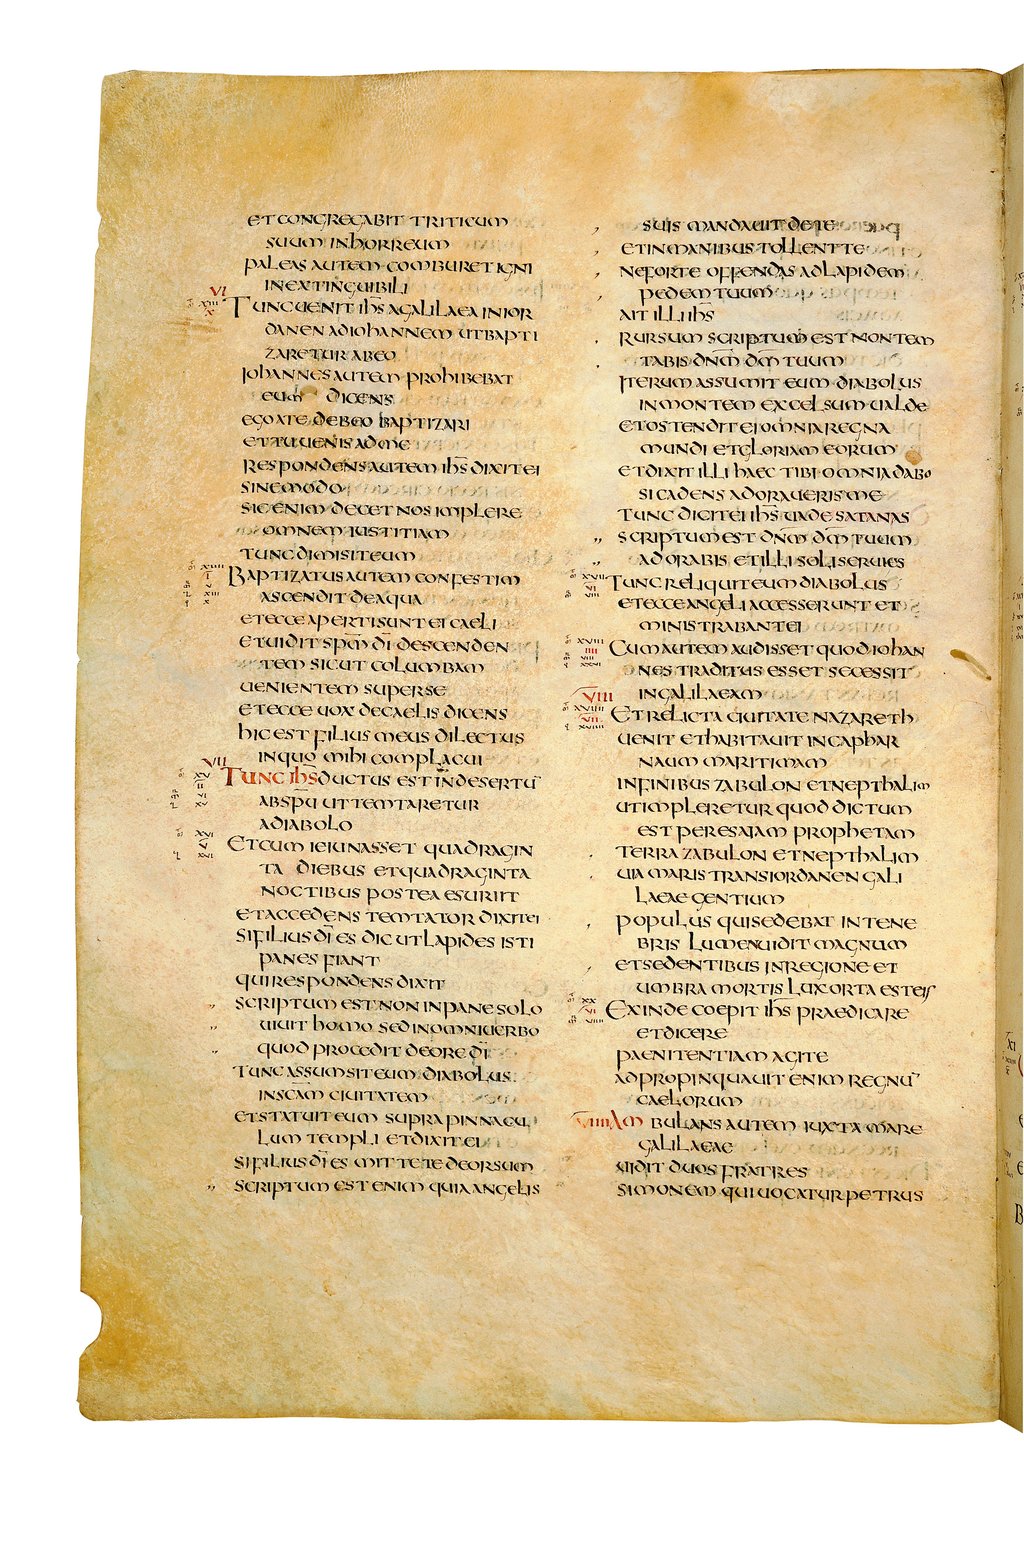 ET CONGREGABIT TRITICUM
SUUM IN HORREUM
PALEAS AUTEM COMBURET IGNI
INEXTINGUIBILI
VI
TUNC UENIT IHS A GALILAEA IN IOR
DANEN AD IOHANNEM UT BAPTI
ZARETUR AB EO
IOHANNES AUTEM PROHIBEBAT
EUM DICENS
EGO A TE DEBEO BAPTIZARI
ET TU UENIS AD ME
RESPONDENS AUTEM IHS DIXIT EI
SINE MODO
SIC ENIM DECET NOS IMPLERE
OMNEM IUSTITIAM
TUNC DIMISIT EUM
BAPTIZATUS AUTEM CONFESTIM
ASCENDIT DE AQUA
ET ECCE APERTI SUNT EI CAELI
ET UIDIT SPM DI DESCENDEN
TEM SICUT COLUMBAM
UENIENTEM SUPER SE
ET ECCE UOX DE CAELIS DICENS
HIC EST FILIUS MEUS DILECTUS
IN QUO MIHI COMPLACUI
VII
TUNC IHS DUCTUS EST IN DESERTU
AB SPU UT TEMTARETUR
A DIABOLO
XVI
ET CUM IEIUNASSET QUADRAGIN
TA DIEBUS ET QUADRAGINTA
NOCTIBUS POSTEA ESURIIT
ET ACCEDENS TEMTATOR DIXIT EI
SI FILIUS DI ES DIC UT LAPIDES ISTI
PANES FIANT
QUI RESPONDENS DIXIT
SCRIPTUM EST NON IN PANE SOLO
UIUIT HOMO SED IN OMNI UERBO
QUOD PROCEDIT DE ORE DI
TUNC ASSUMSIT EUM DIABOLUS
IN SCAM CIUITATEM
ET STATUIT EUM SUPRA PINNACU
LUM TEMPLI ET DIXIT EI
SI FILIUS DI ES MITTE TE DEORSUM
SCRIPTUM EST ENIM QUIA ANGELIS
SUIS MANDAUIT DE TE
ET IN MANIBUS TOLLENT TE
NE FORTE OFFENDAS AD LAPIDEM
PEDEM TUUM
AIT ILLI IHS
RURSUM SCRIPTUM EST NON TEM
TABIS DNM DM TUUM
ITERUM ASSUMIT EUM DIABOLUS
IN MONTEM EXCELSUM UALDE
ET OSTENDIT EI OMNIA REGNA
MUNDI ET GLORIAM EORUM
ET DIXIT ILLI HAEC TIBI OMNIA DABO
SI CADENS ADORAUERIS ME
TUNC DICIT EI IHS UADE SATANAS
SCRIPTUM EST DNM DM TUUM
ADORABIS ET ILLI SOLI SERUIES
XVII
TUNC RELIQUIT EUM DIABOLUS
ET ECCE ANGELI ACCESSERUNT ET
MINISTRABANT EI
XVIII
CUM AUTEM AUDISSET QUOD IOHAN
NES TRADITUS ESSET SECESSIT
IN GALILAEAM
VIII
XVIIII
ET RELICTA CIUITATE NAZARETH
UENIT ET HABITAUIT IN CAPHAR
NAUM MARITIMAM
IN FINIBUS ZABULON ET NEPTHALIM
UT IMPLERETUR QUOD DICTUM
EST PER ESAIAM PROPHETAM
TERRA ZABULON ET NEPTHALIM
UIA MARIS TRANS IORDANEN GALI
LAEAE GENTIUM
POPULUS QUI SEDEBAT IN TENE
BRIS LUMEN UIDIT MAGNUM
ET SEDENTIBUS IN REGIONE ET
UMBRA MORTIS LUX ORTA EST EIS
XX
EXINDE COEPIT IHS PRAEDICARE
ET DICERE
PAENITENTIAM AGITE
ADPROPINQUAUIT ENIM REGNU
CAELORUM
VIIII AMBULANS AUTEM IUXTA MARE
GALILAEAE
UIDIT DUOS FRATRES
SIMONEM QUI UOCATUR PETRUS